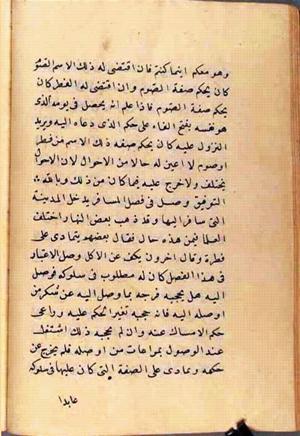 وهو معكم اينما كنتم فان اقتضى له ذلك الاسم الصوم
كان بحكم صفة الصوم وان اقتضى له الفطر كان
بحكم صفة الصوم فاذا علم انه يحصل في يومه الذى
هو قسمه بفتح الفاء على حكم الذى دعاه اليه ويريد
النزول عليه كان بحكم صفه ذلك الاسم من فطر
اوصوم لا اعين له حالا من الاحوال لان الاحوال
تختلف ولاحرج عليه فيما كان من ذلك وبالله
التوفيق وصل في فصل المسافر يدخل المدينة
التى سافر اليها وقد ذهب بعض النهار اختلف
العلما فيمن هذه حال فقال بعضهم يتمادى على
فطره وقال اخرون يكف عن الاكل وصل الاعتبار
في هذا الفصل كان له مطلوب في سلوكه فوصل
اليه هل يحجبه فرحه بما وصل اليه عن شكر من
اوصله اليه فان حجبه تغير الحكم عليه وراعى
حكم الامساك عنه وان لم يحجبه ذلك اشتغل
عند الوصول بمراعات من اوصله فلم يخرج عن
حكمه وتمادى على الصفة التى كان عليها في سلوكه
عابدا